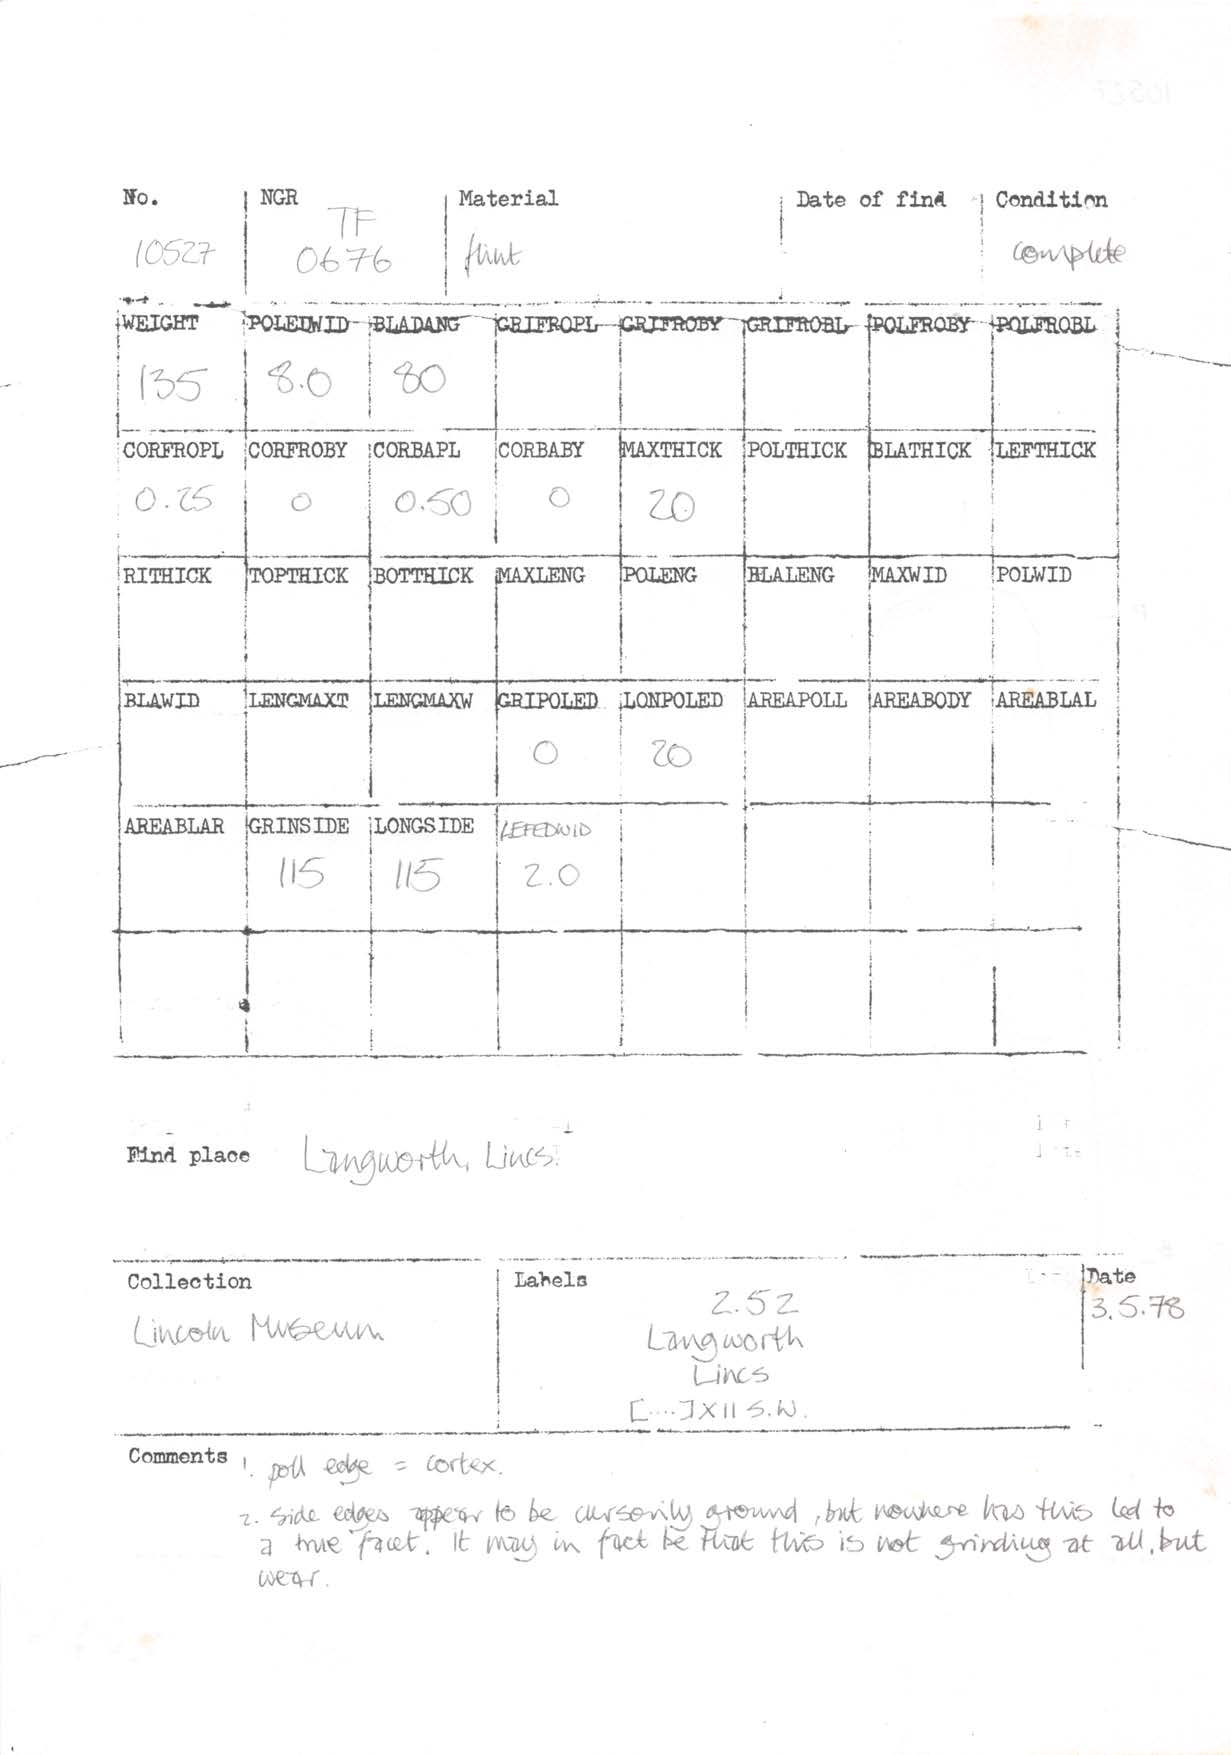 No. NGR Material Date of find Condition
TF
10527 0676 flint complete
WEIGHT POLEDWID BLADANG GRIFROPL GRIFROBY GRIFROBL POLFROBY POLFROBL
135 8.0 80
CORFROPL CORFROBY CORBAPL CORBABY MAXTHICK POLTHICK BLATHICK LEFTHICK
0.25 0 0.50 0 20
RITHICK TOPTHICK BOTTHICK MAXLENG POLENG BLALENG MAXWID POLWID
BLAWID LENGMAXT LENGMAXW GRIPOLED LONPOLED AREAPOLL AREABODY AREABLAL
0 20
AREABLAR GRINSIDE LONGSIDE LEFEDWID
115 115 2.0
Find place Langworth, Lincs.
Collection Labels Date
Lincoln Museum 2.52 3.5.78
Langworth
Lincs
[....]XII S.W.
Comments 1. poll edge = cortex.
2. side edges appear to be cursorily ground, but nowhere has this led to
a "true" facet. It may in fact be that this is not grinding at all, but
wear.